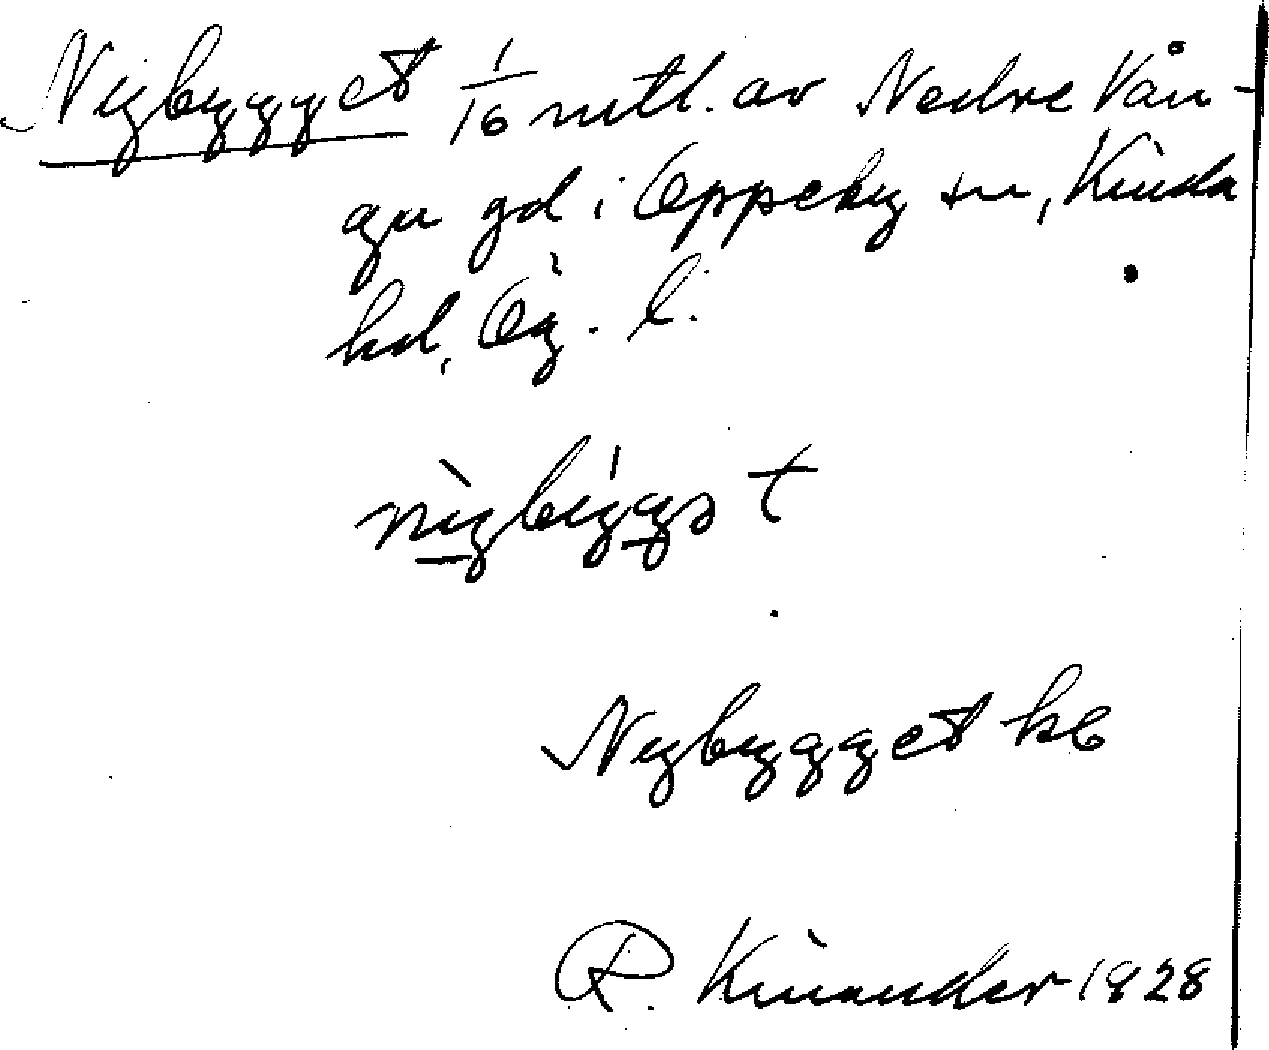 Nybygget 1/16 mtl. av Nedre Vån-
ga gd i Oppeby sn, Kinda
hd, Ög. l.
nỳbýggət
Nybygget kb
R. Kinander 1928